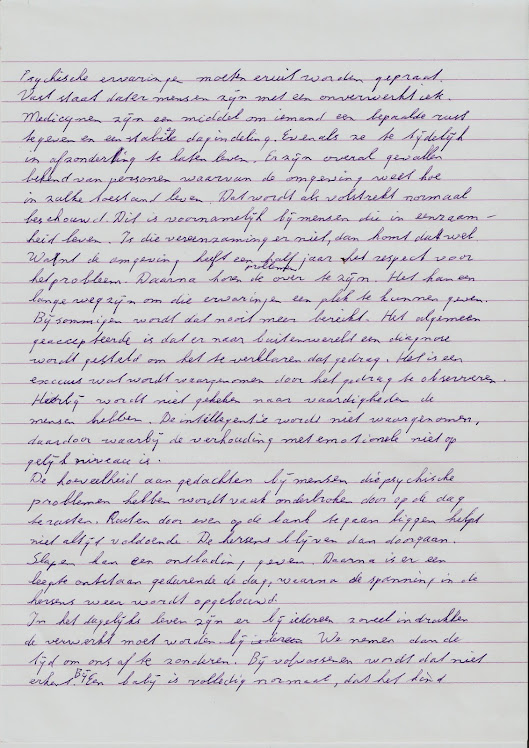 Psychische ervaringen moeten eruit worden gepraat.
Vast staat dat er mensen zijn met een onverwerkt iek.
Medicijnen zijn een middel om iemand een bepaalde rust
te geven en een stabiele dagindeling. Evenals ze te tijdelijk
in afzondering te laten leven. Er zijn overal gevallen
bekend van personen waarvan de omgeving weet hoe
in zulke toestand leven. Dat wordt als volstrekt normaal
beschouwd. Dit is voornamelijk bij mensen die in eenzaam-
heid leven. Is die vereenzaming er niet, dan komt dat wel.
Want de omgeving heeft een half jaar het respect voor
het probleem. Daarna horen de problemen over te zijn. Het kan een
lange weg zijn om die ervaringen een plek te kunnen geven.
Bij sommigen wordt dat nooit meer bereikt. Het algemeen
geaccepteerde is dat er naar buitenwereld een diagnose
wordt gesteld om het te verklaren dat gedrag. Het is een
excuus wat wordt waargenomen door het gedrag te observeren.
Hierbij wordt niet gekeken naar vaardigheden de
mensen hebben. De intellegentie wordt niet waargenomen,
daardoor waarbij de verhouding met emotionele niet op
gelijk niveau is.
De hoeveelheid aan gedachten bij mensen die psychische
problemen hebben wordt vaak onderbroken door op de dag
te rusten. Rusten door even op de bank te gaan liggen helpt
niet altijd voldoende. De hersens blijven dan doorgaan.
Slapen kan een ontlading geven. Daarna is er een
leegte ontstaan gedurende de dag, waarna de spanning in de
hersens weer wordt opgebouwd.
In het dagelijks leven zijn er bij iedereen zoveel indrukken
de verwerkt moet worden bij iedereen. We nemen dan de
tijd om ons af te zonderen. Bij volwassenen wordt dat niet
erkent. Bij Een baby is volledig normaal, dat het kind